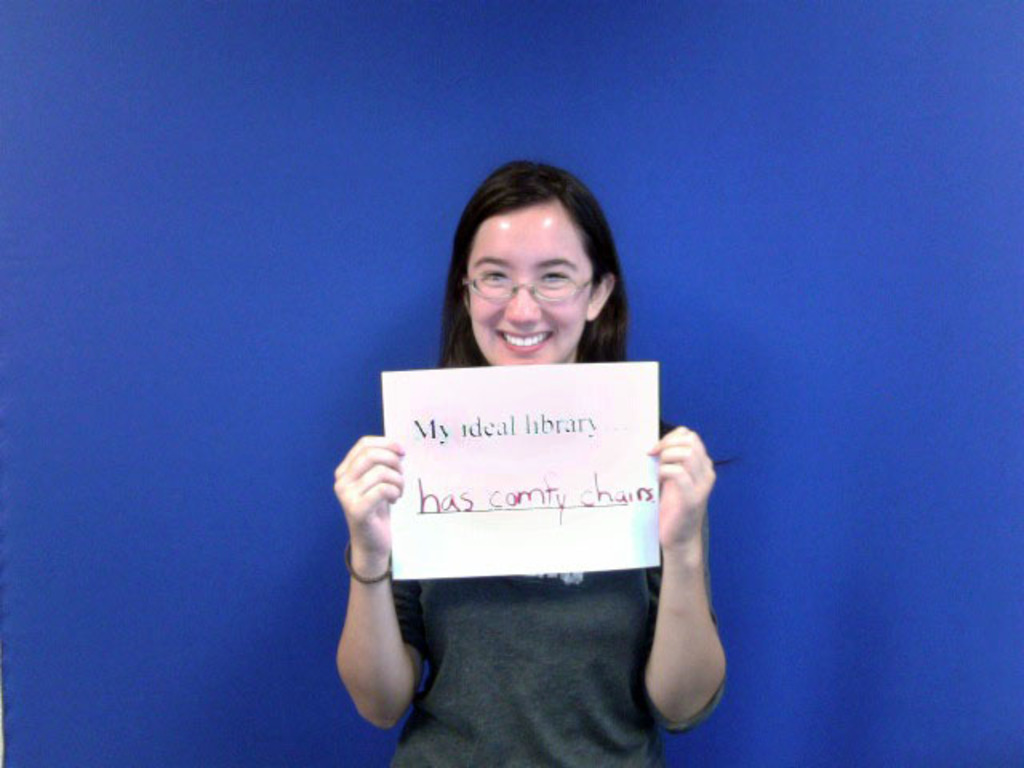 My ideal library ...
has comfy chairs.